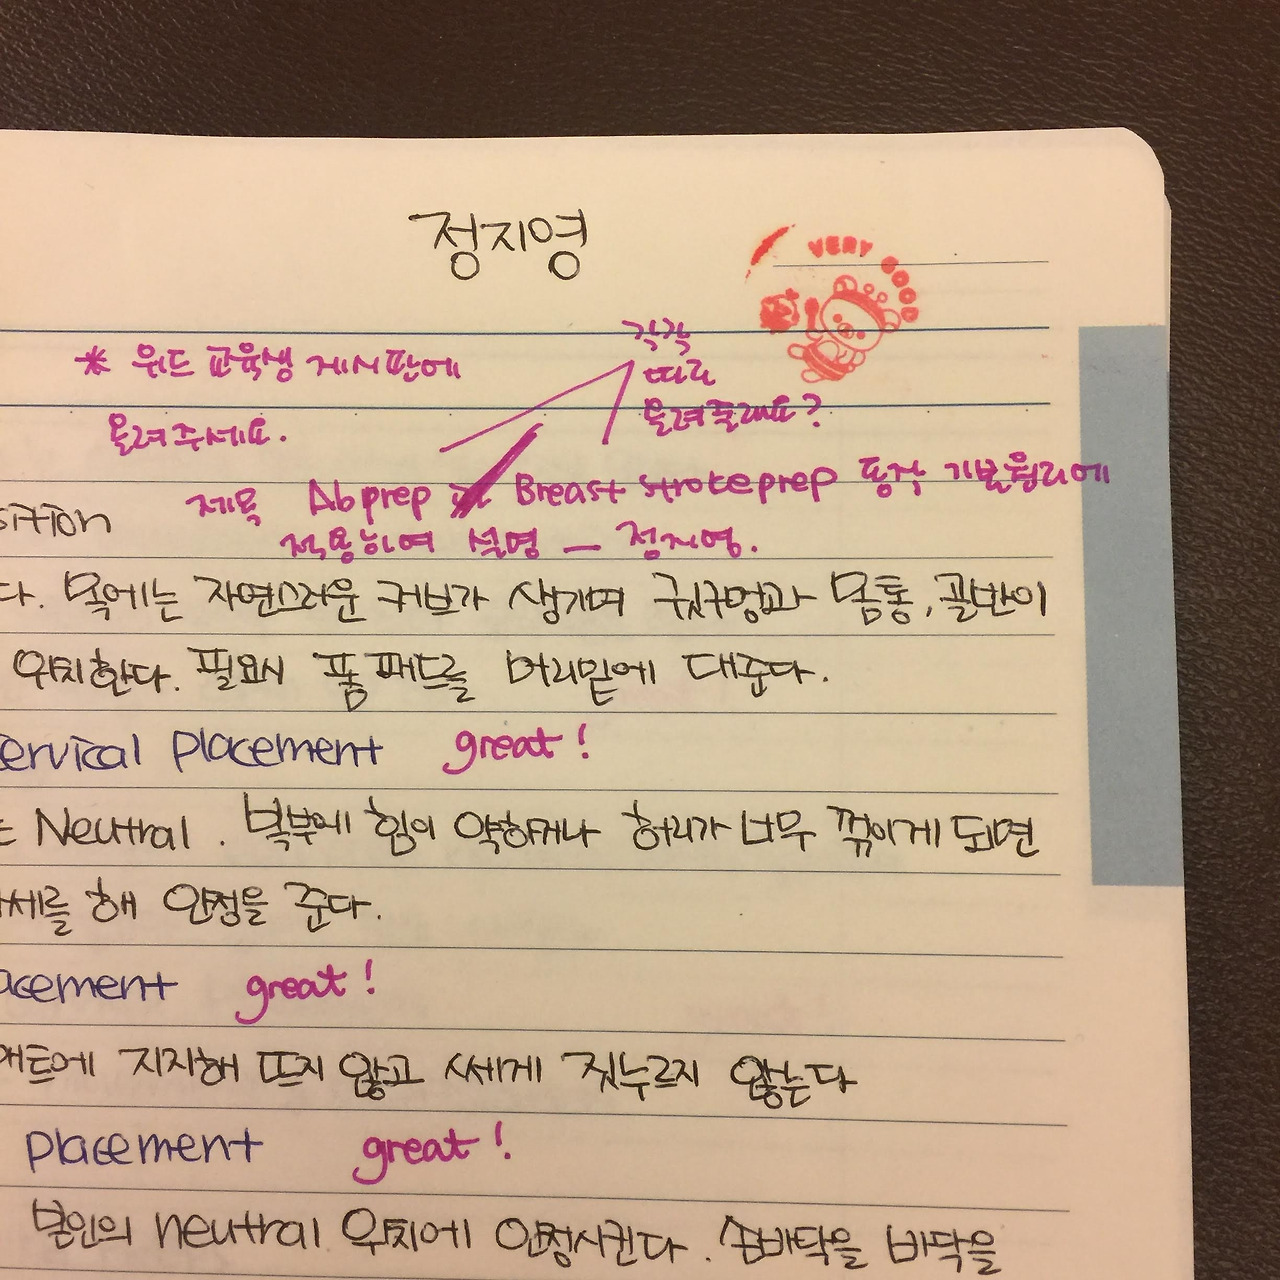 정지영
VERY GOOD
* 위드 교육생 게시판에
올려주세요.
각각
따로
올려줄래요?
제목 Ab prep Breast stroke prep 동작 기본원리에
적용하여 설명 - 정지영.
sition
다. 목에는 자연스러운 커브가 생기며 귓구멍과 몸통, 골반이
위치한다. 필요시 폼패드를 머리밑에 대준다.
ervical placement great!
는 Neutral. 복부에 힘이 약하거나 허리가 너무 꺾이게 되면
세를 해 안정을 준다.
acement great!
매트에 지지해 뜨지 않고 쎄게 짓누르지 않는다
placement great!
본인의 neutral 위치에 안정시킨다. 손바닥을 바닥을